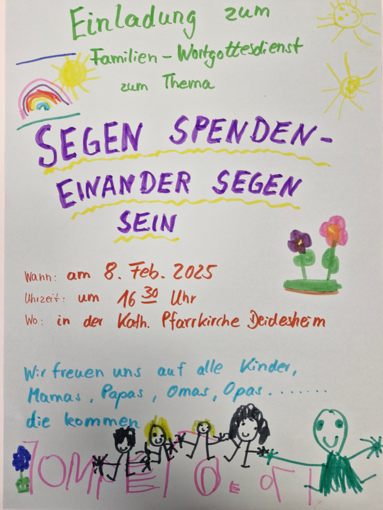 Einladung zum
Familien-Wortgottesdienst
zum Thema
SEGEN SPENDEN-
EINANDER SEGEN
SEIN
Wann: am 8. Feb. 2025
Uhrzeit: um 16 30 Uhr
Wo: in der Kath. Pfarrkirche Deidesheim
Wir freuen uns auf alle Kinder,
Mamas, Papas, Omas, Opas.......
die kommen